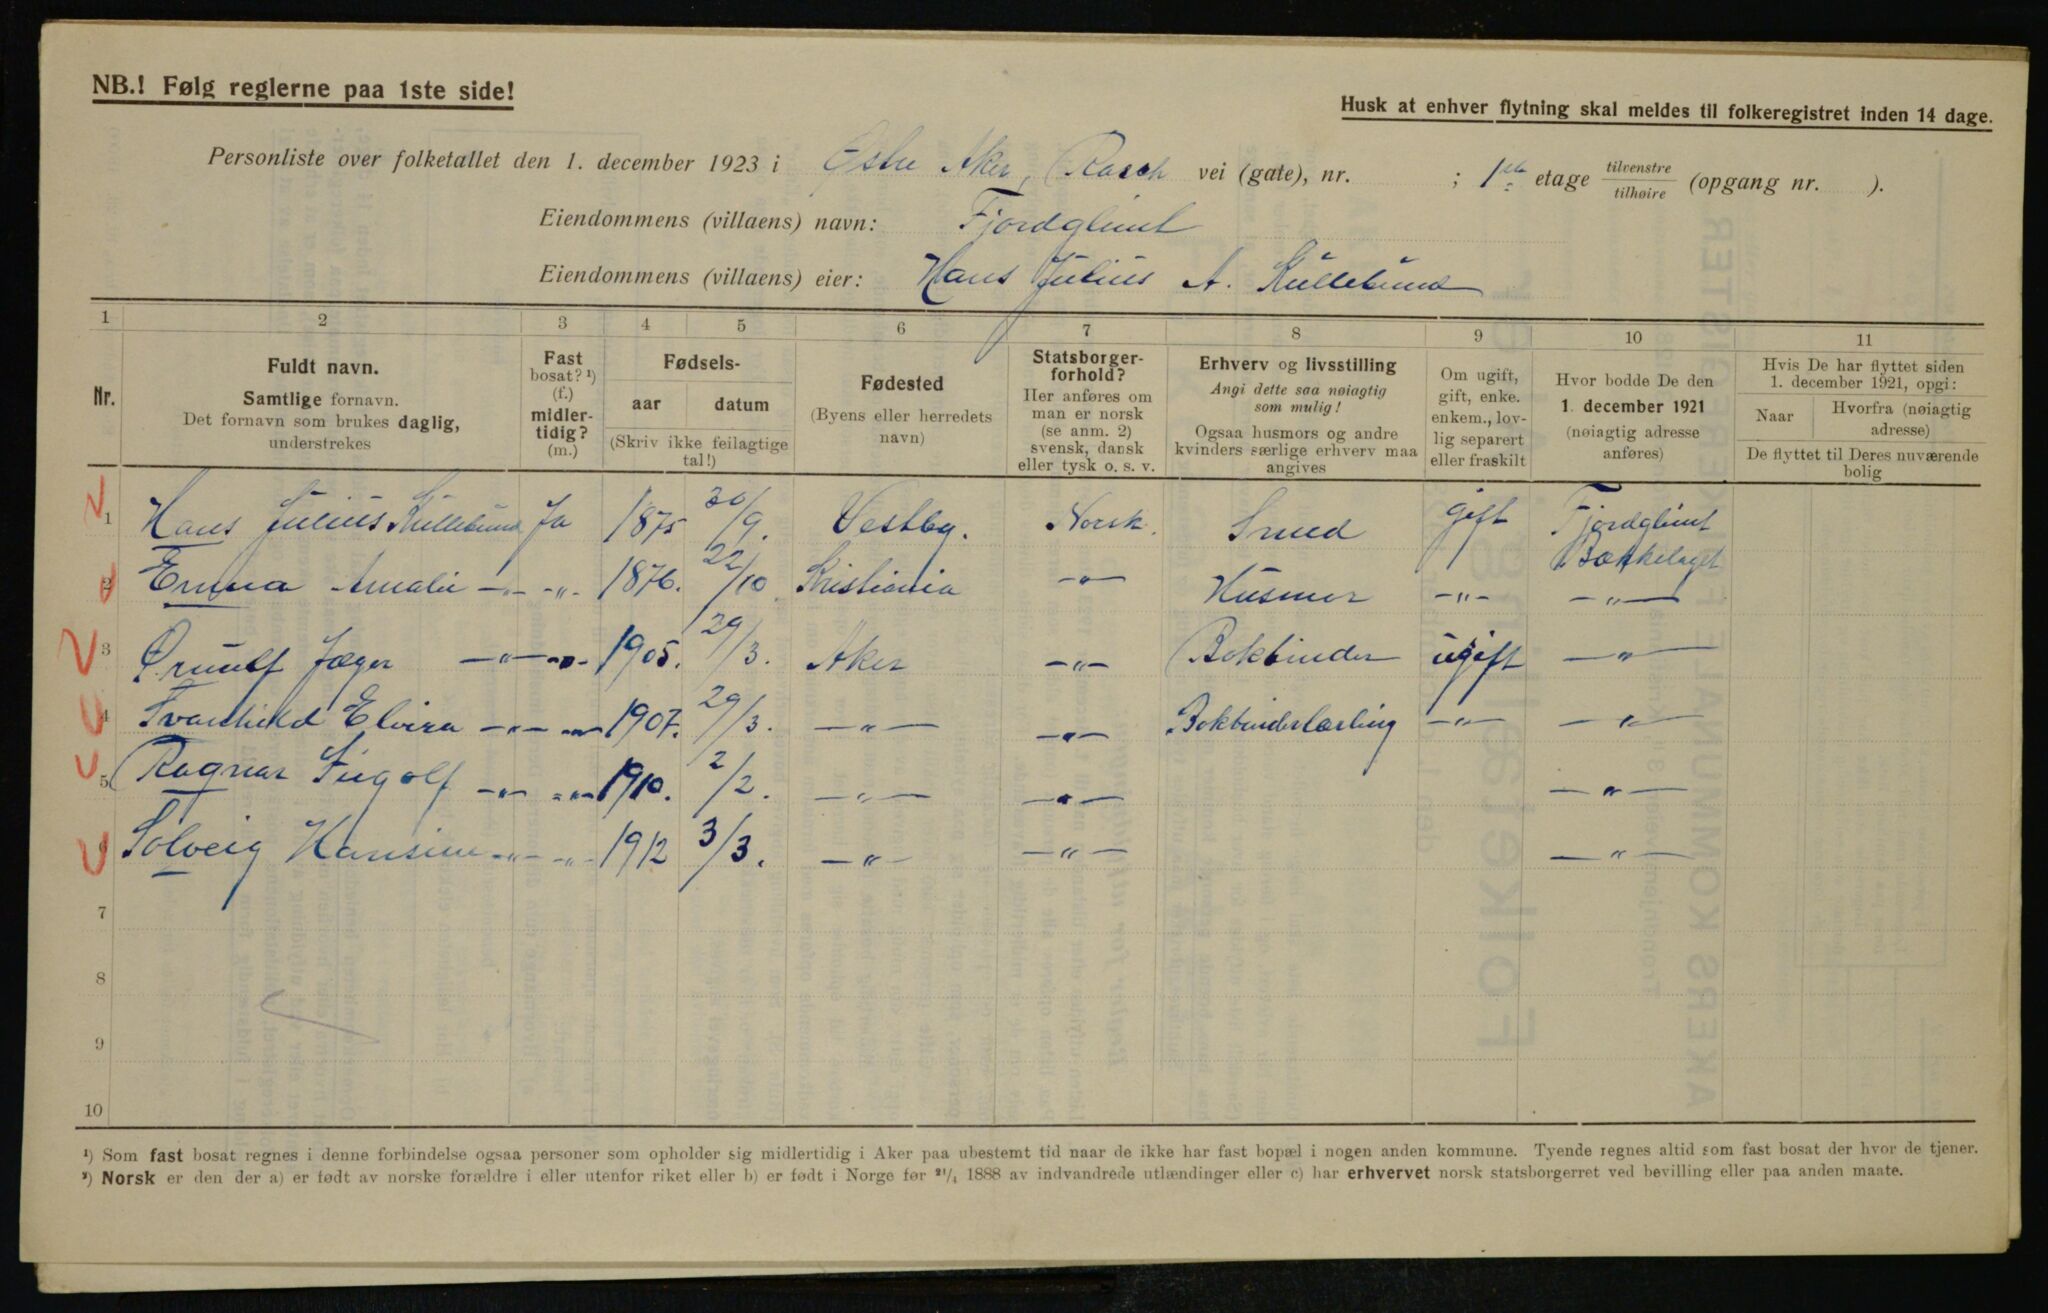 NB.! Følg reglerne paa 1ste side!
Husk at enhver flytning skal meldes til folkeregistret inden 14 dage.
Personliste over folketallet den 1. december 1923 i Østre Aker, Rasch vei (gate), nr. ; 1ste etage tilvenstre tilhøire (opgang nr. ).
Eiendommens (villaens) navn: Fjordglimt
Eiendommens (villaens) eier: Hans Julius A. Kullebund
1 2 3 4 5 6 7 8 9 10 11
Nr.
Fuldt navn.
Samtlige fornavn.
Det fornavn som brukes daglig,
understrekes
Fast
bosat? ¹)
(f.)
midler-
tidig?
(m.)
Fødsels-
aar datum
(Skriv ikke feilagtige
tal!)
Fødested
(Byens eller herredets
navn)
Statsborger-
forhold?
Her anføres om
man er norsk
(se anm. 2)
svensk, dansk
eller tysk o. s. v.
Erhverv og livsstilling
Angi dette saa nøiagtig
som mulig!
Ogsaa husmors og andre
kvinders særlige erhverv maa
angives
Om ugift,
gift, enke.
enkem., lov-
lig separert
eller fraskilt
Hvor bodde De den
1. december 1921
(nøiagtig adresse
anføres)
Hvis De har flyttet siden
1. december 1921, opgi:
Naar Hvorfra (nøiagtig
adresse)
De flyttet til Deres nuværende
bolig
1 Hans Julius Kullebund Ja 1875 30/9. Vestby. Norsk. Smed gift Fjordglimt
Bækkelaget
2 Emma Amalie -"- -"- 1876. 22/10 Kristiania -"- Husmor -"- -"-
3 Ørnulf Jæger -"- -"- 1905. 29/3. Aker -"- Bokbinder ugift -"-
4 Svanhild Elvira -"- -"- 1907. 29/3. -"- -"- Bokbinderlærling -"- -"-
5 Ragnar Ingolf -"- -"- 1910. 2/2. -"- -"- -"-
6 Solveig Hansine -"- -"- 1912 3/3. -"- -"- -"-
7
8
9
10
¹) Som fast bosat regnes i denne forbindelse ogsaa personer som opholder sig midlertidig i Aker paa ubestemt tid naar de ikke har fast bopæl i nogen anden kommune. Tyende regnes altid som fast bosat der hvor de tjener.
²) Norsk er den der a) er født av norske forældre i eller utenfor riket eller b) er født i Norge før ²¹/₄ 1888 av indvandrede utlændinger eller c) har erhvervet norsk statsborgerret ved bevilling eller paa anden maate.